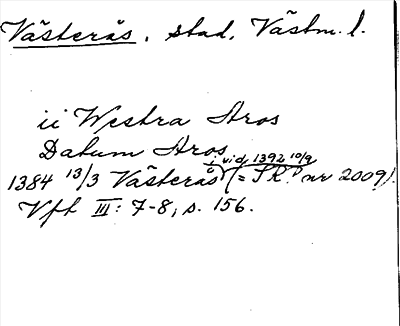 Västerås, stad, Västm. l.
ii Westra Aros
Datum Aros
i vid. 1392 10/9
1384 13/3 Västerås (= SRP nr 2009).
Vft III: 7-8, s. 156.